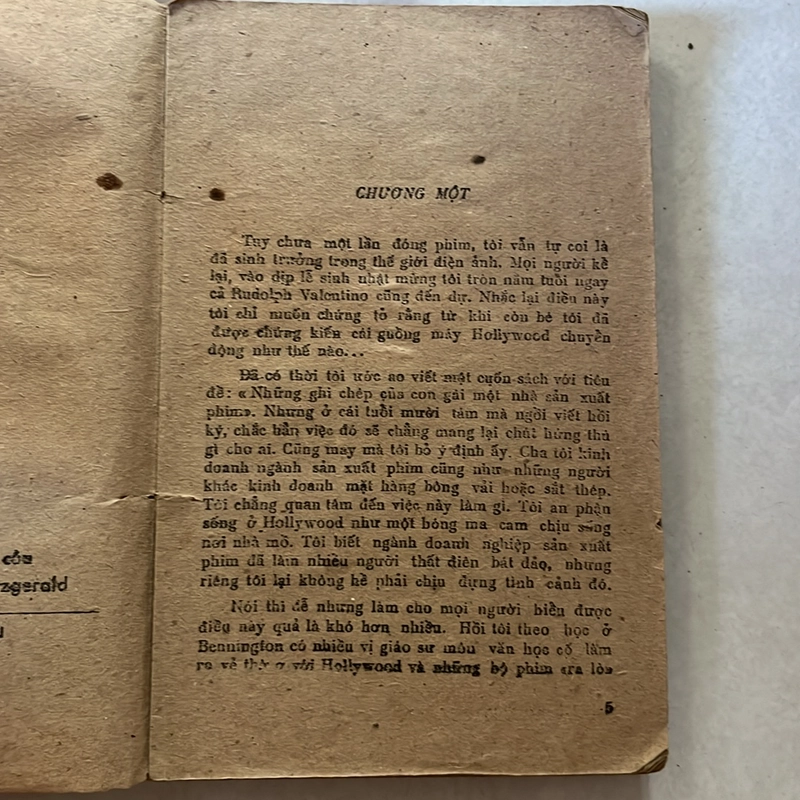 của
zgerald
CHƯƠNG MỘT
Tuy chưa một lần đóng phim, tôi vẫn tự coi là
đã sinh trưởng trong thế giới điện ảnh. Mọi người kể
lại, vào dịp lễ sinh nhật mừng tôi tròn năm tuổi ngay
cả Rudolph Valentino cũng đến dự. Nhắc lại điều này
tôi chỉ muốn chứng tỏ rằng từ khi còn bé tôi đã
được chứng kiến cái guồng máy Hollywood chuyển
động như thế nào...
Đã có thời tôi ước ao viết một cuốn sách với tiêu
đề: « Những ghi chép của con gái một nhà sản xuất
phim». Nhưng ở cái tuổi mười tám mà ngồi viết hồi
ký, chắc hẳn việc đó sẽ chẳng mang lại chút hứng thú
gì cho ai. Cũng may mà tôi bỏ ý định ấy. Cha tôi kinh
doanh ngành sản xuất phim cũng như những người
khác kinh doanh mặt hàng bông vải hoặc sắt thép.
Tôi chẳng quan tâm đến việc này làm gì. Tôi an phận
sống ở Hollywood như một bóng ma cam chịu sống
nơi nhà mồ. Tôi biết ngành doanh nghiệp sản xuất
phim đã làm nhiều người thất điên bát đảo, nhưng
riêng tôi lại không hề phải chịu đựng tình cảnh đó.
Nói thì dễ nhưng làm cho mọi người hiểu được
điều này quả là khó hơn nhiều. Hồi tôi theo học ở
Bennington có nhiều vị giáo sư môn văn học cố làm
ra vẻ thờ ơ với Hollywood và những bộ phim của
5